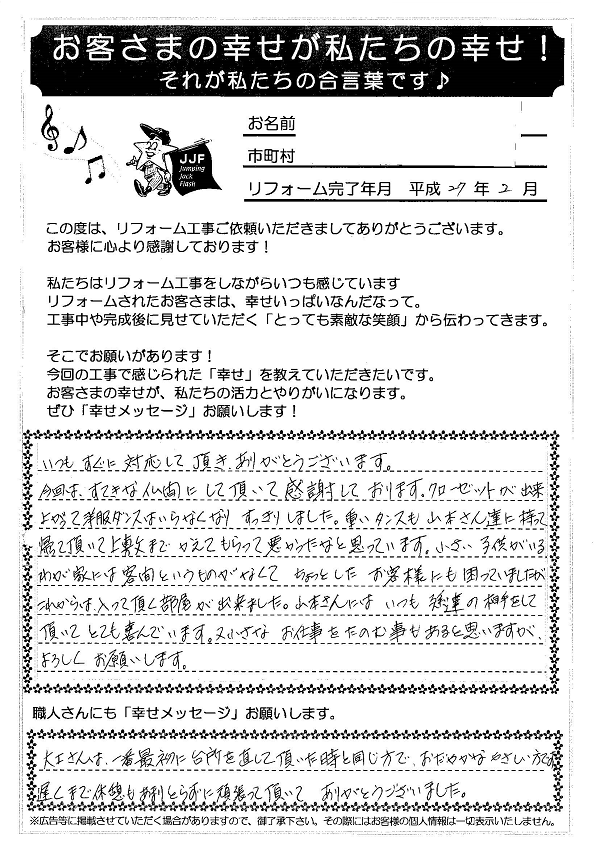 お客さまの幸せが私たちの幸せ！
それが私たちの合言葉です♪
JJF
Jumping
Jack
Flash
お名前
市町村
リフォーム完了年月 平成 27 年 2 月
この度は、リフォーム工事ご依頼いただきましてありがとうございます。
お客様に心より感謝しております！
私たちはリフォーム工事をしながらいつも感じています
リフォームされたお客さまは、幸せいっぱいなんだなって。
工事中や完成後に見せていただく「とっても素敵な笑顔」から伝わってきます。
そこでお願いがあります！
今回の工事で感じられた「幸せ」を教えていただきたいです。
お客さまの幸せが、私たちの活力とやりがいになります。
ぜひ「幸せメッセージ」お願いします！
いつもすぐに対応して頂き、ありがとうございます。
今回は、すてきな仏間にして頂いて感謝しております。クローゼットが出来
上がって洋服ダンスはいらなくなり すっきりしました。重いタンスも山本さん達に持って
帰って頂いて上敷まで かえてもらって悪かったなと思っています。小さい子供がいる
わが家には客間というものがなくて ちょっとした お客様にも困っていましたが
これからは入って頂く部屋が出来ました。山本さんには いつも の相手をして
頂いて とても喜んでいます。又小さな お仕事をたのむ事もあると思いますが、
よろしく お願いします。
職人さんにも「幸せメッセージ」お願いします。
大工さんは、一番最初に台所を直して頂いた時と同じ方で、おだやかなやさい方で
遅くまで休憩も とらずに頑張って頂いて ありがとうございました。
※広告等に掲載させていただく場合がありますので、御了承下さい。その際にはお客様の個人情報は一切表示いたしません。